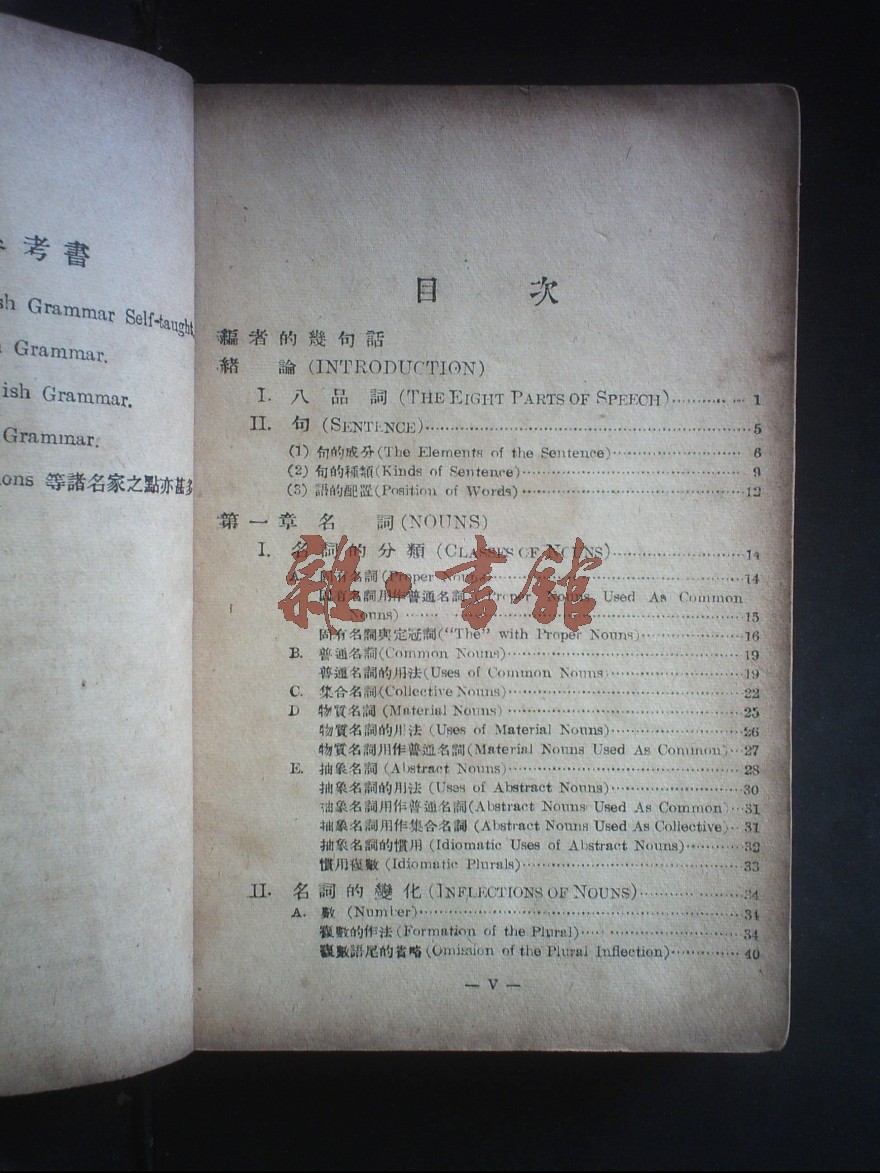 考書
sh Grammar Self-taught
Grammar.
ish Grammar.
Grammar.
ons 等諸名家之點亦甚多
目 次
編者的幾句話
緒 論 (INTRODUCTION)
I. 八 品 詞 (THE EIGHT PARTS OF SPEECH) 1
II. 句 (SENTENCE) 5
(1) 句的成分 (The Elements of the Sentence) 6
(2) 句的種類 (Kinds of Sentence) 9
(3) 語的配置 (Position of Words) 12
第一章 名 詞 (NOUNS)
I. 名詞的分類 (CLASSES OF NOUNS) 14
A. 固有名詞 (Proper Nouns) 14
固有名詞用作普通名詞 (Proper Nouns Used As Common
Nouns) 15
固有名詞與定冠詞 ("The" with Proper Nouns) 16
B. 普通名詞 (Common Nouns) 19
普通名詞的用法 (Uses of Common Nouns) 19
C. 集合名詞 (Collective Nouns) 22
D 物質名詞 (Material Nouns) 25
物質名詞的用法 (Uses of Material Nouns) 26
物質名詞用作普通名詞 (Material Nouns Used As Common) 27
E. 抽象名詞 (Abstract Nouns) 28
抽象名詞的用法 (Uses of Abstract Nouns) 30
抽象名詞用作普通名詞 (Abstract Nouns Used As Common) 31
抽象名詞用作集合名詞 (Abstract Nouns Used As Collective) 31
抽象名詞的慣用 (Idiomatic Uses of Abstract Nouns) 32
慣用複數 (Idiomatic Plurals) 33
II. 名詞的變化 (INFLECTIONS OF NOUNS) 34
A. 數 (Number) 34
數的作法 (Formation of the Plural) 34
數語尾的省略 (Omission of the Plural Inflection) 40
— V —
雜·書館